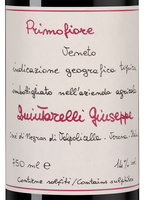 Primofiore
Veneto
indicazione geografica tipica
imbottigliato nell'azienda agricola
Quintarelli Giuseppe
Cerè di Negrar di Valpolicella - Verona - Italia
750 ml e 14% vol
Contiene solfiti / Contains sulphites